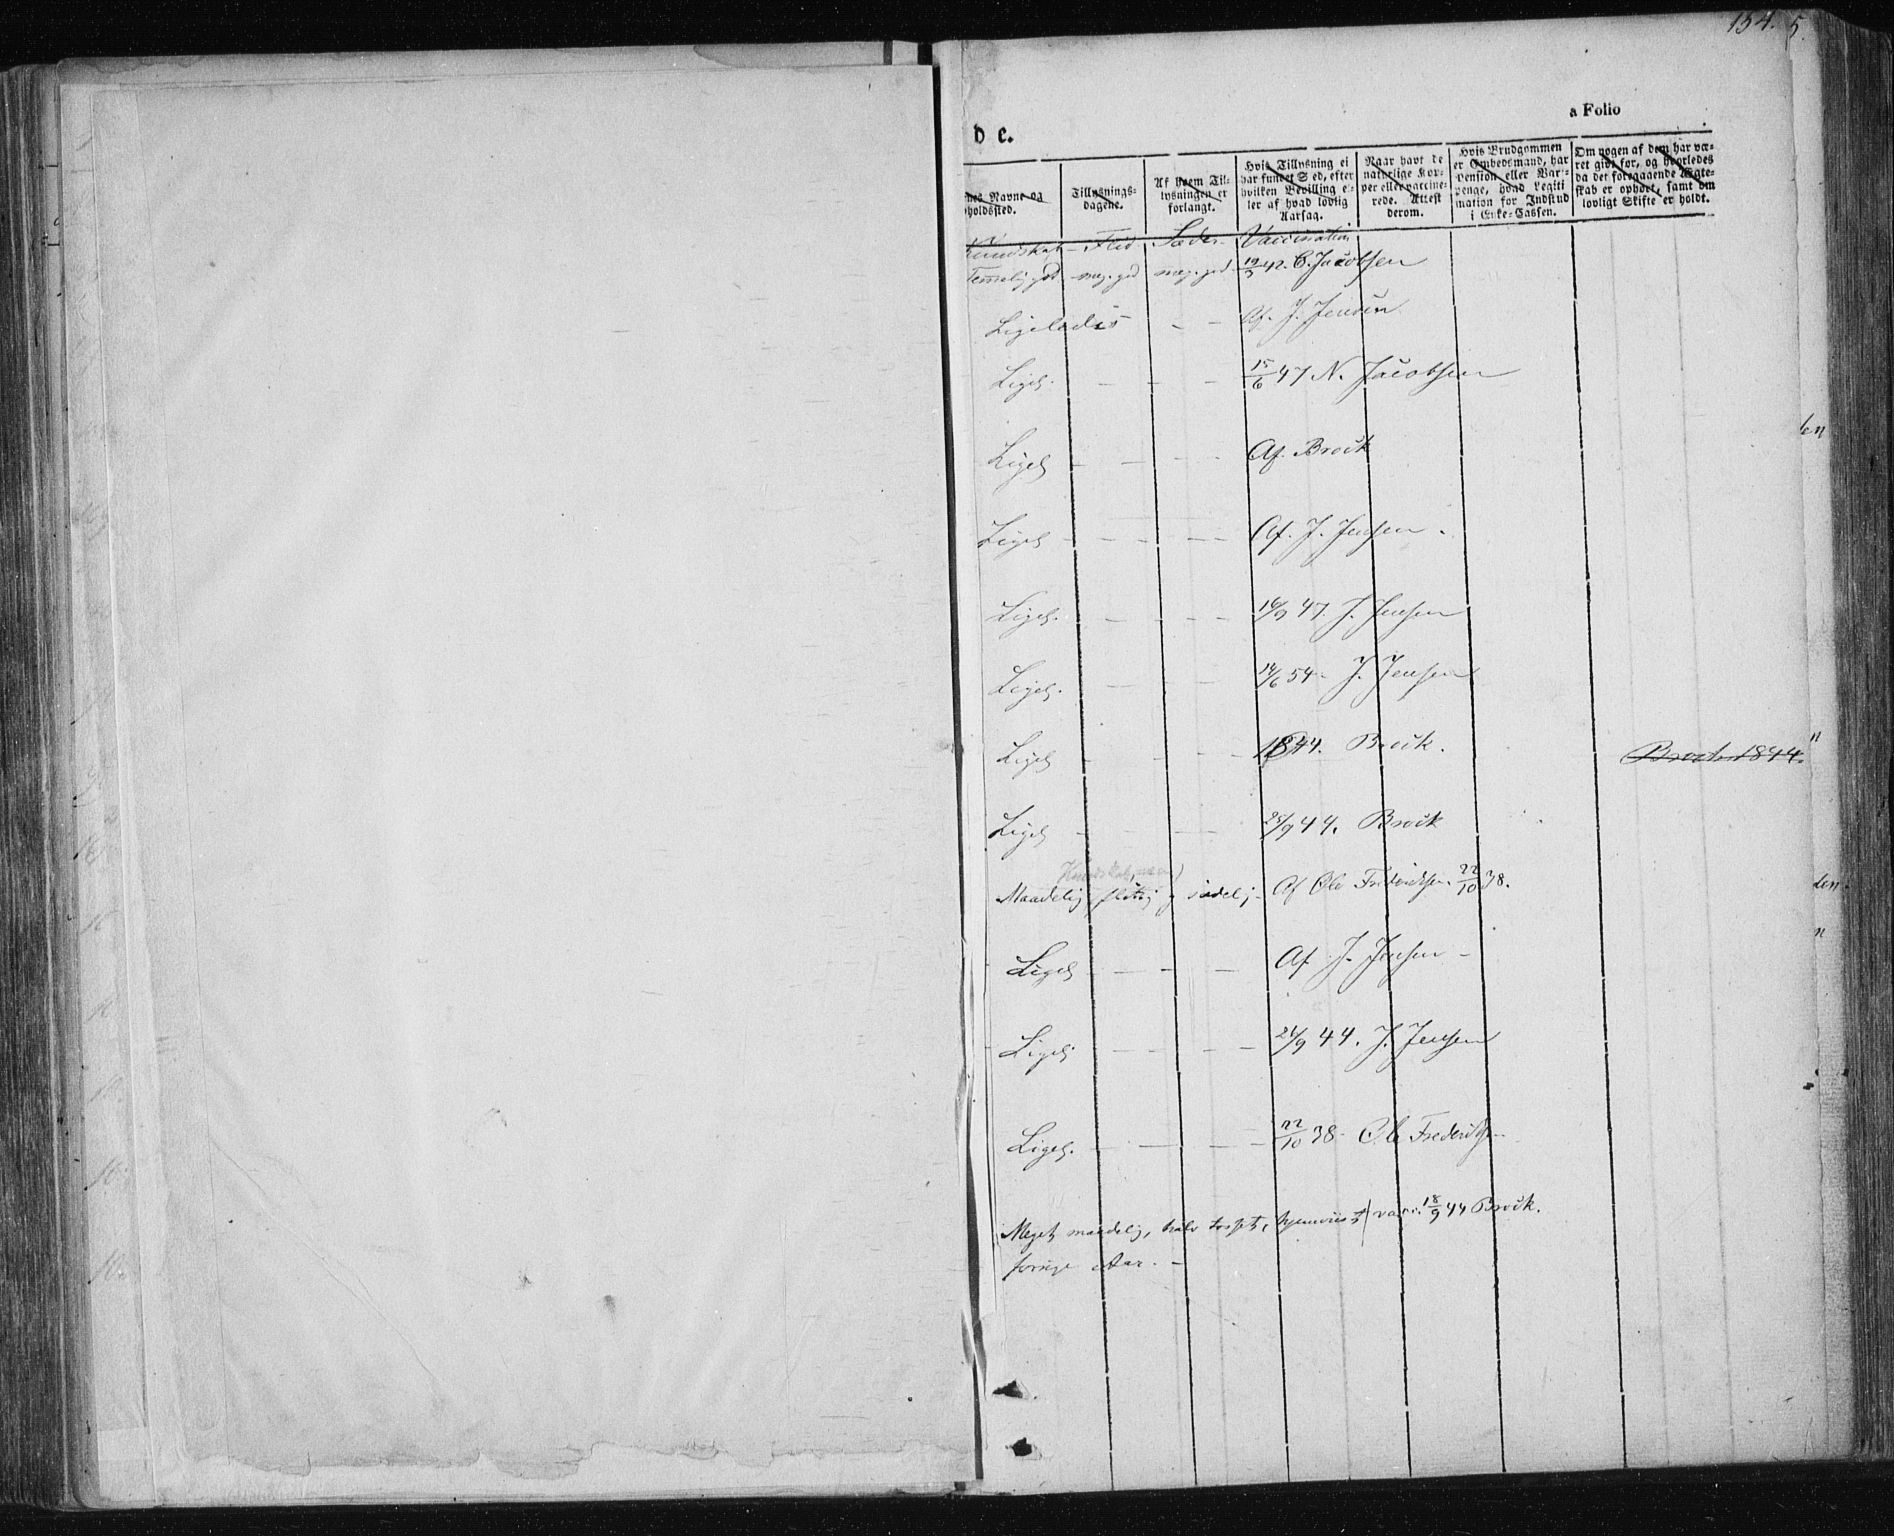 134. 5.
a Folio
d e.
nes Navne og
holdssted.
Tillysnings-
dagene.
Af hvem Til-
lysningen er
forlangt.
Hvis Tillysning ei
har fundet Sted, efter
hvilken Bevilling e-
ler af hvad lovlig
Aarsag.
Naar havt de
naturlige Kop-
per eller vaccine-
rede. Attest
derom.
Hvis Brudgommen
er Embedsmand, har
Pension eller Var-
penge, hvad Legiti
mation for Indskud
i Enke-Cassen.
Om nogen af dem har væ-
ret gift for, og hvorledes
da det foregaaende Ægte-
skab er ophørt, samt om
lovligt Skifte er holdt.
Kundskab - Flid Sæder - Vaccination
Temmelig god meg. god meg. god 19/9 42. C. Jacobsen
Ligeledes - - Af. J. Jensen
Ligel. - - - 15/6 47 N. Jacobsen
Ligel - - - Af. Brock
Ligel - - - - Af. J. Jensen -
Ligel. - - - 16/9 47. J. Jensen
Ligel. - - - 14/6 54 - J. Jensen
Ligel - - - 1844. Brock.
Brock 1844.
Ligel - - - 25/9 44. Brock
Maadelig flittig g sædelig - Af Ole Frederiksen 22/10 38.
Ligel - - - Af J. Jensen -
Ligel - - - 24/9 44. J. Jensen
Ligel. - - - 22/10 38 - Ole Frederiksen
Meget maadelig, halv tosset, hjemviist vacc. 18/9 44 Brock.
forrige Aar. -